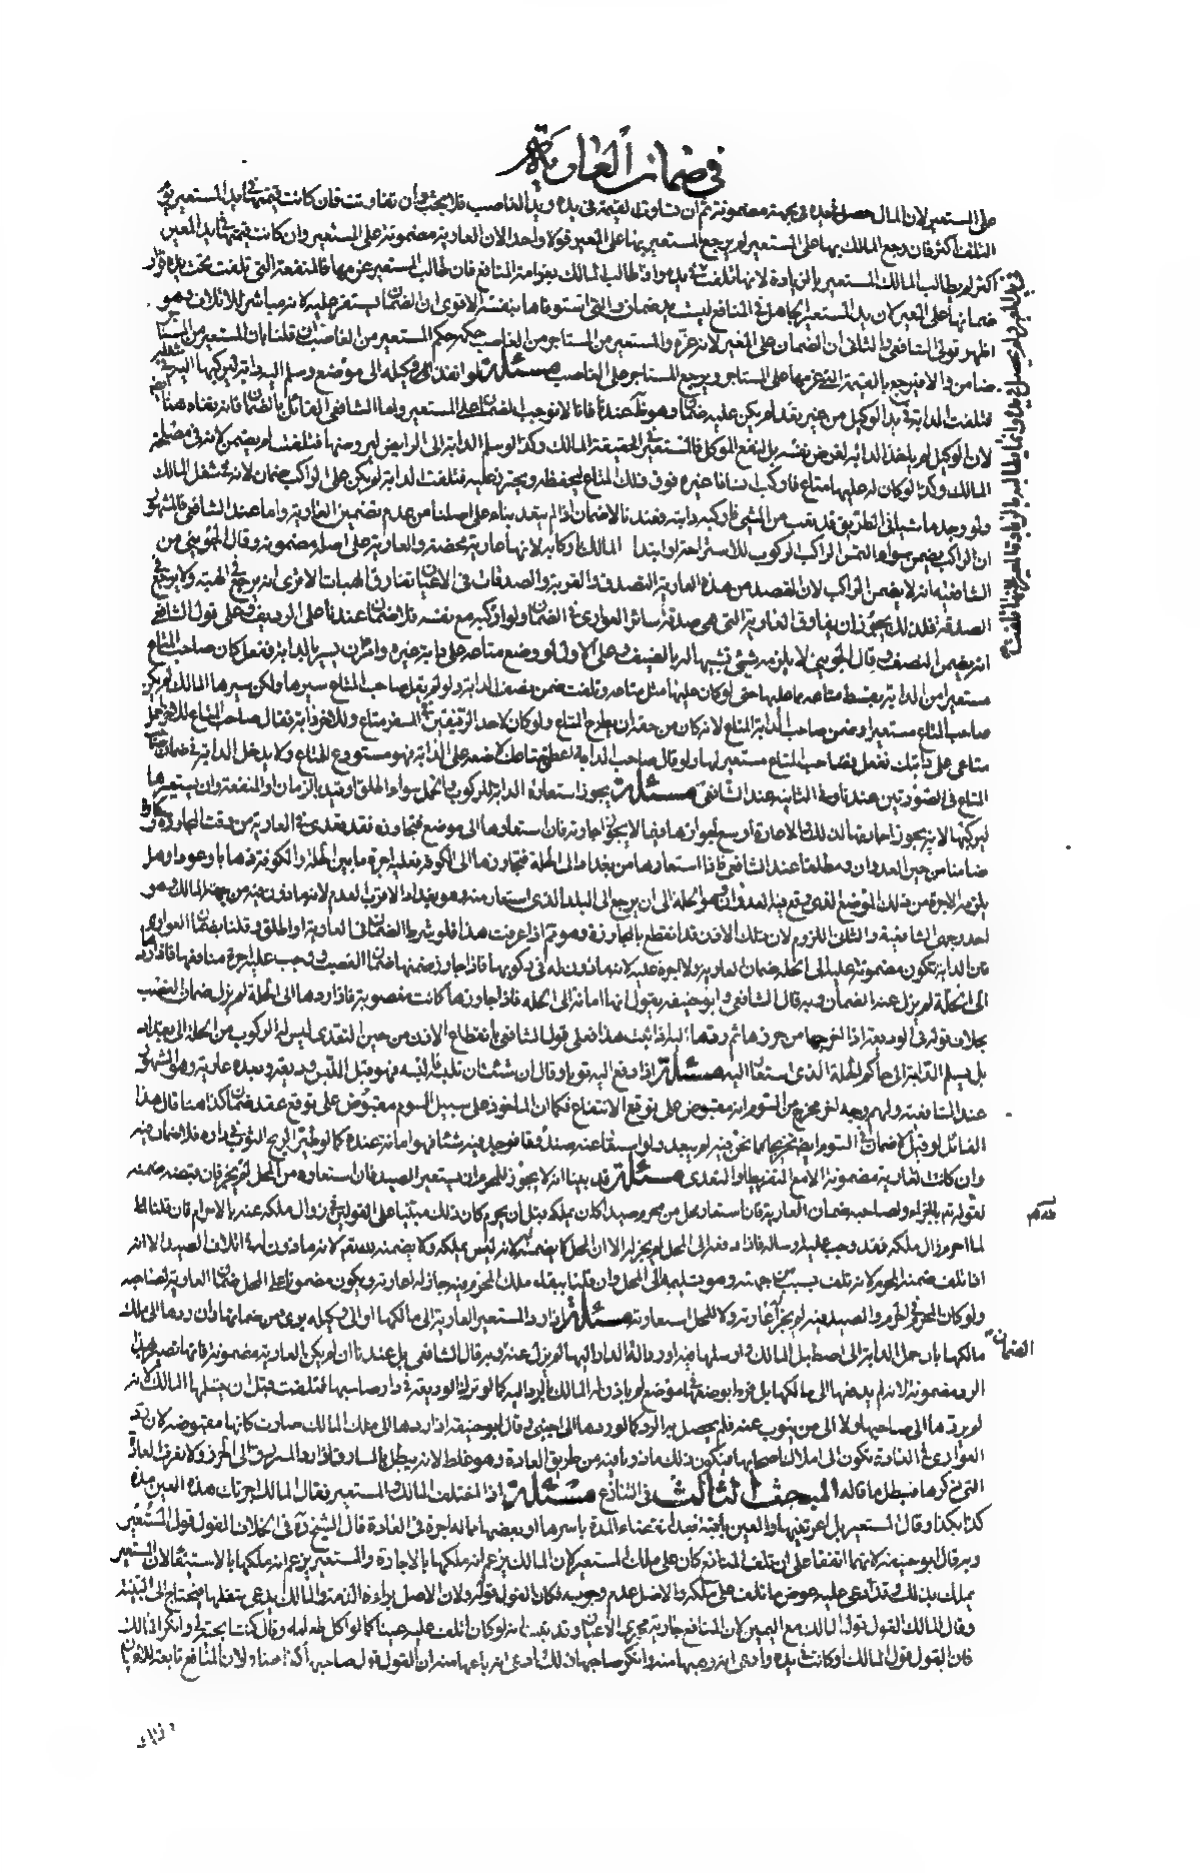 في ضمان العارية
على المستعير لان المال حصل في يده في جهة مضمونة ثم ان تساوت القيمة في يده ويد الغاصب فلا بحث وان تفاوتت فان كانت قيمتها في يد المستعير يوم
التلف اكثر فان رجع المالك بها على المستعير لم يرجع المستعير بها على المعير قولا واحدا لان العارية مضمونة على المستعير وان كانت قيمتها في يد المعير
اكثر لم يطالب المالك المستعير بالزيادة لانها تلفت في يد سواه اذا طالب المالك بغرامة المنافع فان طالب المستعير غرمها فالمنفعة التي تلفت تحت يده قرار
ضمانها على المعير لان يد المستعير الجاهل في المنافع ليست يد ضمان والتي استوفاها بنفسه الاقوى ان الضمان يستقر عليه لانه مباشر للاتلاف وهو
اظهر قولي الشافعي والثاني ان الضمان على المعير لانه غره والمستعير من المستاجر من الغاصب حكمه حكم المستعير من الغاصب ان قلنا بان المستعير من المستاجر
ضامن والا فيرجع بالقيمة التي غرمها على المستاجر ويرجع المستاجر على الغاصب مسئلة لو انفذ وكيله الى موضع وسلم اليه دابة ليركبها اليه في شغله
فتلفت الدابة في يد الوكيل من غير تعد لم يكن عليه ضمان وهو ظاهر عندنا فانا لا نوجب الضمان على المستعير واما الشافعي القائل بالضمان فانه نفاه هنا ايضا
لان الوكيل لم ياخذ الدابة لغرض نفسه بل لنفع الموكل فالمستعير في الحقيقة المالك وكذا لو سلم الدابة الى الرايض ليروضها فتلفت لم يضمن لانه في مصلحة
المالك وكذا لو كان له عليها متاع فاركب انسانا غيره فوق ذلك المتاع ليحفظه ويحترز عليه فتلفت الدابة لم يكن على الراكب ضمان لانه في شغل المالك
ولو وجد ماشيا في الطريق قد تعب من المشي فاركبه دابته فعندنا لا ضمان اذا لم يتعد بناء على اصلنا من عدم تضمين العارية واما عند الشافعي فالمشهور
ان الراكب يضمن سواء التمس الراكب الركوب للاستراحة او ابتدا المالك اركابه لانها عارية محضة والعارية على اصله مضمونة وقال الجويني من
الشافعية انه لا يضمن الراكب لان القصد من هذه العارية التصدق والقربة والصدقات في الاعيان تفارق الهبات الا ترى انه يرجع في الهبة ولا يرجع في
الصدقة فلذلك يجوز ان يفارق العارية التي هي صدقة سائر العواري في الضمان ولو اركبه مع نفسه فلا ضمان عندنا على الرديف وعلى قول الشافعي
انه يضمن النصف وقال الجويني لا يلزمه شئ تشبيها له بالضيف وعلى الاول لو وضع متاعه على دابة غيره وامره ان يسير بالدابة ففعل كان صاحب المتاع
مستعيرا من الدابة بقسط متاعه مما عليها حتى لو كان عليها مثل متاعه وتلفت ضمن نصف الدابة ولو لم يقل صاحب المتاع سيرها ولكن سيرها المالك لم يكن
صاحب المتاع مستعيرا وضمن صاحب الدابة المتاع لانه كان من حقه ان يطرح المتاع ولو كان لاحد الرفيقين في السفر متاع وللاخر دابة فقال صاحب المتاع للاخر احمل
متاعي على دابتك ففعل فصاحب المتاع مستعير لها ولو قال صاحب الدابة اعطني متاعك لاضعه على الدابة فهو مستودع المتاع ولا يدخل الدابة في ضمان صاحب
المتاع في الصورتين عندنا وفي الثانية عند الشافعي مسئلة يجوز استعارة الدابة للركوب والحمل سواء اطلق او قيد بالزمان او المنفعة وان يستعيرها
ليركبها لانه يجوز اجارتها لذلك والاعارة اوسع لجوازها فيما لا يجوز اجارته فان استعارها الى موضع فتجاوزه فقد تعدى في العارية من وقت المجاوزة وكان
ضامنا من حين العدوان ومطلقا عند الشافعي فاذا استعارها من بغداد الى الحلة فتجاوزها الى الكوفة فعليه اجرة ما بين الحلة والكوفة ذهابا وعودا وهل
يلزمه الاجرة من ذلك الموضع الذي وقع فيه العدوان وهو الحلة الى ان يرجع الى البلد الذي استعار منه وهو بغداد الاقرب العدم لانه ماذون فيه من جهة المالك وهو
احد وجهي الشافعية والثاني اللزوم لان ذلك الاذن قد انقطع بالمجاوزة وهو ثم اذا عرفت هذا فلو شرط الضمان في العارية او اطلق وقلنا بضمان العواري
فان الدابة تكون مضمونة عليه الى الحلة ضمان العارية ولا اجرة عليه لانه ماذون له في ركوبها فاذا جاوز ضمنها ضمان الغصب ووجب عليه اجرة منافعها فاذا ردها
الى الحلة لم يزل عنه الضمان وبه قال الشافعي وابو حنيفة يقول انها امانة الى الحلة فاذا جاوزها كانت مغصوبة فاذا ردها الى الحلة لم يزل ضمان الغصب
بخلاف قوله في الوديعة اذا اخرجها من حرزها ثم ردها اليه اذا ثبت هذا فعلى قول الشافعي بانقطاع الاذن من حين التعدي ليس له الركوب من الحلة الى بغداد
بل يسلم الدابة الى حاكم الحلة الذي استعار اليه مسئلة اذا دفع اليه ثوبا وقال ان شئت ان تلبسه فالبسه فهو قبل اللبس وديعة وبعده عارية وهو المشهور
عند الشافعية ولهم وجه اخر مخرج من السوم انه مقبوض على توقع الانتفاع فكما ان الماخوذ على سبيل السوم مقبوض على توقع عقد ضمان كذا هنا قال هذا
القائل لو قيل لا ضمان في السوم ايضا تخريجا مما نحن فيه لم يبعد ولو استعار عنه صندوقا فوجد فيه شيئا فهو امانة عنده كما لو طير الريح الثوب في داره فلا ضمان فيه
وان كانت العارية مضمونة الا مع التفريط او التعدي مسئلة قد بينا انه لا يجوز للمحرم ان يستعير الصيد فان استعاره من المحل لم يجز فان قبضه ضمنه
لله تعالى بالجزاء ولصاحبه ضمان العارية فان استعار محل من محرم صيدا كان يملكه قبل ان يحرم كان ذلك مبنيا على القولين في زوال ملكه عنه بالاحرام فان قلنا انه
لما احرم زال ملكه فقد وجب عليه ارساله فاذا دفعه الى المحل لم يجز له الا ان المحل لا يضمنه له لانه ليس بملكه ولا يضمنه لله تعالى لانه ماذون في اتلاف الصيد الا انه
اذا تلف ضمنه المحرم لانه تلف بسبب من جهته وهو تسليمه الى المحل وان قلنا ببقاء ملك المحرم فيه جاز له اعارته ويكون مضمونا على المحل ضمان العارية لصاحبه
ولو كان المحرم في الحرم والصيد فيه لم يجز اعارته ولا للمحل استعارته مسئلة اذا رد المستعير العارية الى مالكها او الى وكيله برئ من ضمانها وان ردها الى ملك
مالكها بان حمل الدابة الى اصطبل المالك وارسلها فيه او رد الة الدار اليها لم يزل عنه وبه قال الشافعي بل عندنا ان لم يكن العارية مضمونة فانها تصير بهذا
الرد مضمونة لانه لم يدفعها الى مالكها بل فرط بوضعها في موضع لم ياذن له المالك بالرد اليه كما لو ترك الوديعة في دار صاحبها فتلفت قبل ان يتسلمها المالك لانه
لم يردها الى صاحبها ولا الى من ينوب عنه فلم يحصل به الرد كما لو ردها الى اجنبي وقال ابو حنيفة اذا ردها الى ملك المالك صارت كانها مقبوضة لان رد
العواري في العادة يكون الى املاك اصحابها فيكون ذلك ماذونا فيه من طريق العادة وهو غلط لانه يبطل بالسارق اذا رد المسروق الى الحرز ولا نعرف العادة
التي ذكرها فبطل ما قاله المبحث الثالث في التنازع مسئلة اذا اختلف المالك والمستعير فقال المالك اجرتك هذه العين مدة
كذا بكذا وقال المستعير بل اعرتنيها والعين باقية بعد انقضاء المدة باسرها او بعضها مما له اجرة في العادة قال الشيخ ره في الخلاف القول قول المستعير
وبه قال ابو حنيفة لانهما اتفقا على ان تلف المنافع كان على ملك المستعير لان المالك يزعم انه ملكها بالاجارة والمستعير يزعم انه ملكها بالاستيفاء لان المستعير
يملك بذلك وقد ادعى عليه عوض ما تلف على ملكه والاصل عدم وجوبه فكان القول قوله ولان الاصل براءة الذمة والمالك يدعي شغلها فيحتاج الى البينة
وقال المالك القول قول المالك مع اليمين لان المنافع جارية مجرى الاعيان وقد ثبت انه لو كان اتلف عليه عينا كما لو اكل طعامه وقال كنت ابحته لي وانكر المالك
فان القول قول المالك او كانت في يده وادعى انه وهبها منه وانكر صاحبها ذلك وادعى انه باعها منه ان القول قول صاحبها كذا هنا ولان المنافع تابعة للاعيان